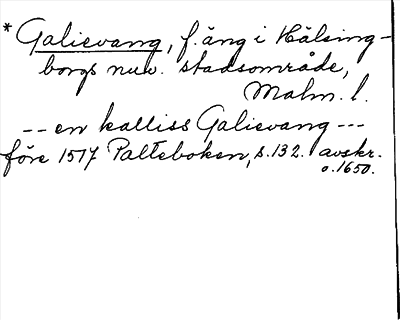 * Galievang, f. äng i Hälsing-
borgs nuv. stadsområde,
Malm. l.
-- en kalliss Galievang ---
före 1517 Palteboken, s. 132. avskr.
o. 1650.